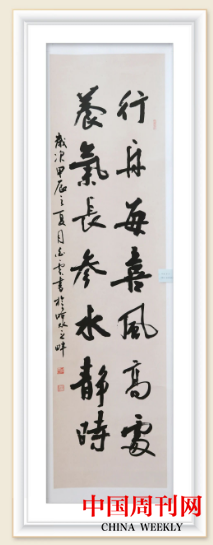 行舟每喜風高處
養氣長参水靜時
歲次甲辰之夏月志雲書於之畔
中国周刊网
CHINA WEEKLY